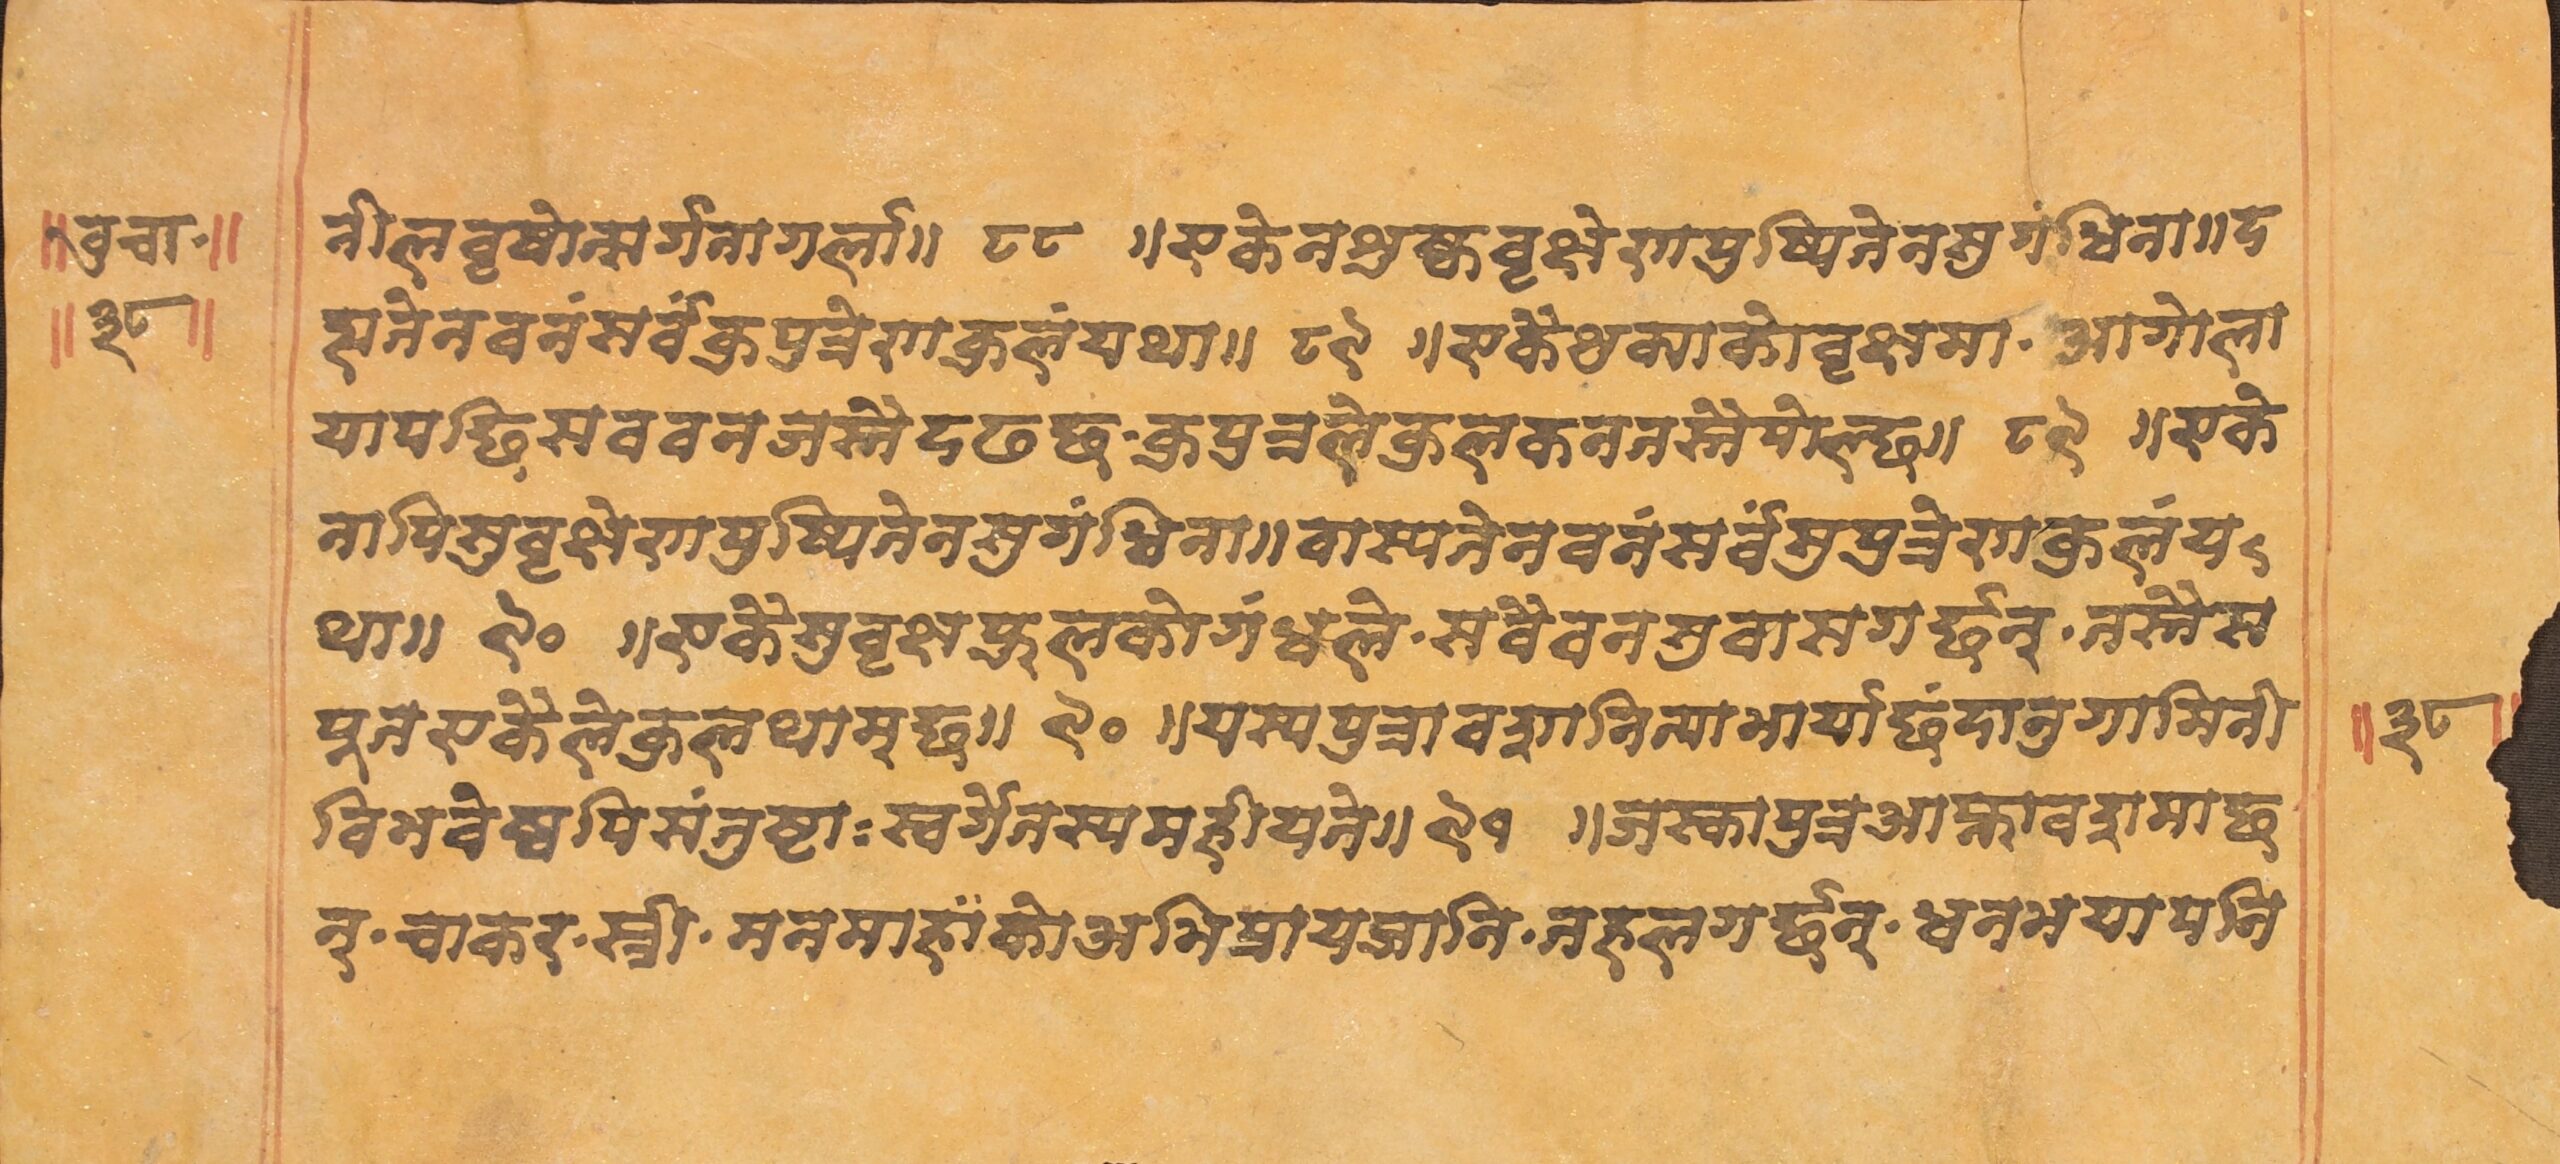 ॥वुचा·॥
॥३८॥
नीलवृषोत्सर्गनागर्ला॥ ८८ ॥एकेनशुष्कवृक्षेणपुष्पितेनसुगंधिना॥द
ह्यतेनवनंसर्वंकुपुत्रेणकुलंयथा॥ ८९ ॥एकैथक्याकोवृक्षमा·आगोला
यापछिसववनजस्तैदढछ·कुपुत्रलेकुलकनतस्तैपोल्छ॥ ८९ ॥एके
नापिसुवृक्षेणपुष्पितेनसुगंधिना॥वास्यतेनवनंसर्वंसुपुत्रेणकुलंय
था॥ ९० ॥एकैसुवृक्षफूलकोगंधले·सवैवनसुवासगर्छन्·तस्तैस
पूतएकैलेकुलथाम्छ॥ ९० ॥यस्यपुत्रावशानित्याभार्याछंदानुगामिनी
विभवेष्वपिसंतुष्टाःस्वर्गेतस्यमहीयते॥ ९१ ॥जस्कापुत्रआफ्नावशमाछ
न्·चाकर·स्त्री·मनमाहाँकोअभिप्रायजानि·तहलगर्छन्·धनभयापनि
॥३८॥